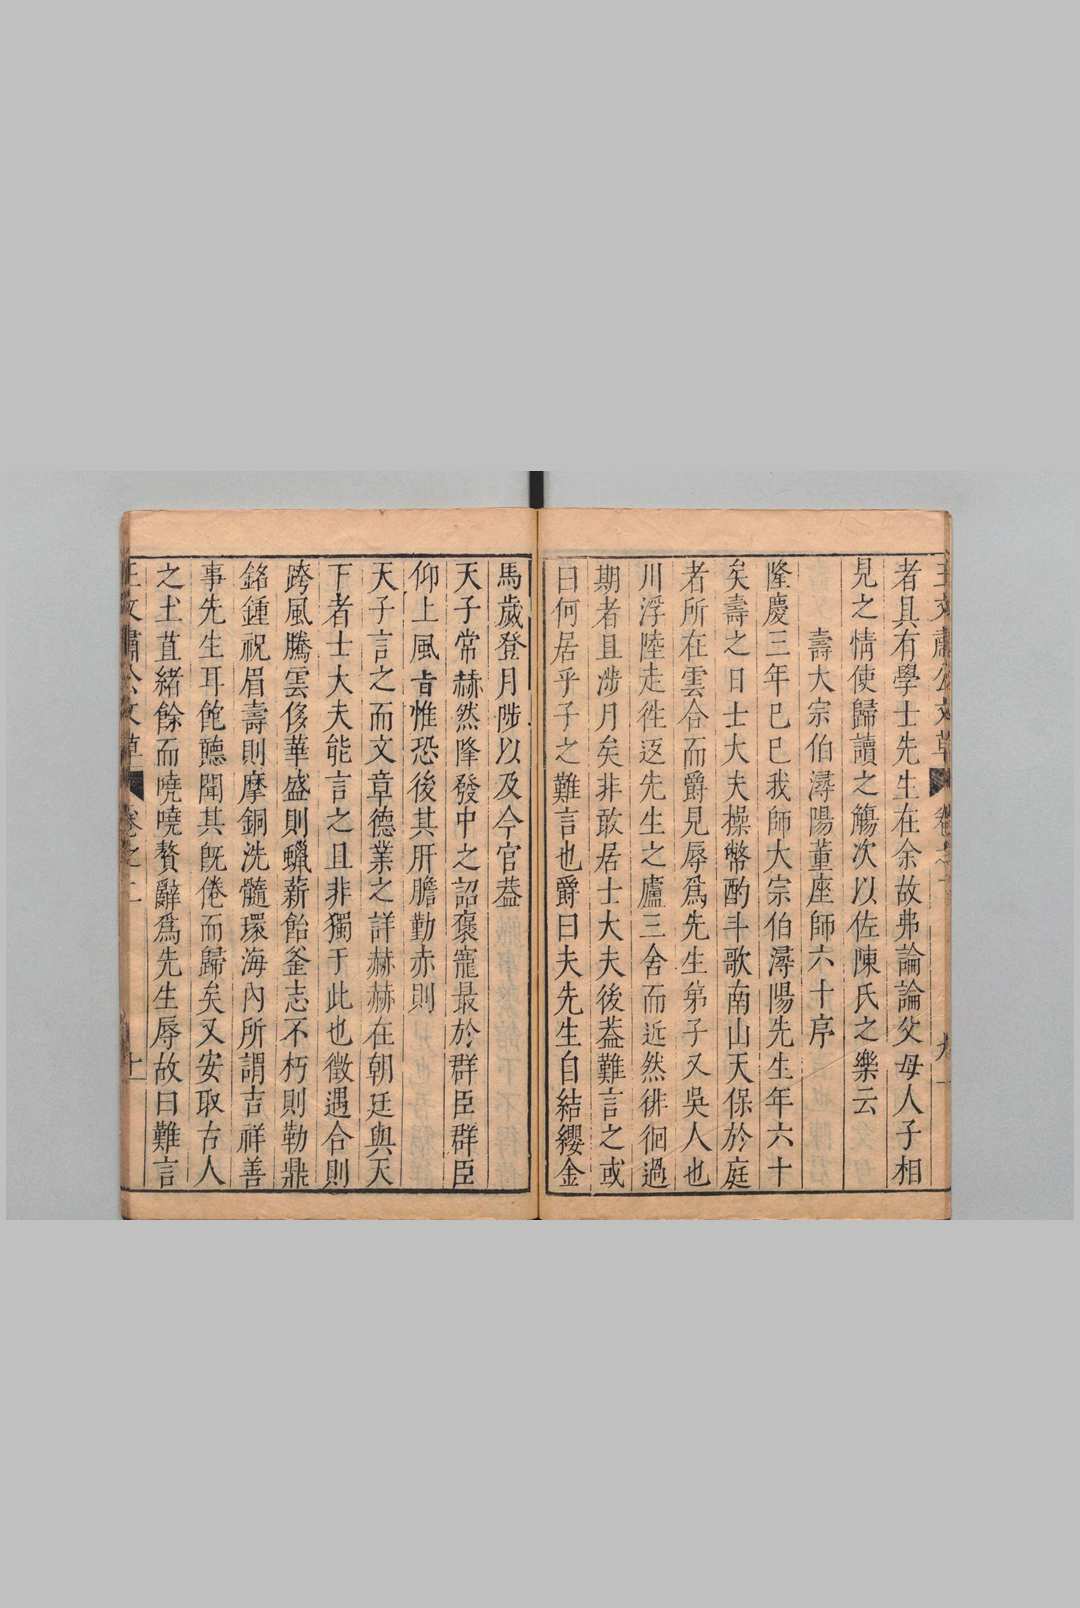 者具有學士先生在余故弗論論父母人子相
見之情使歸讀之觴次以佐陳氏之樂云
壽大宗伯潯陽董座師六十序
隆慶三年己巳我師大宗伯潯陽先生年六十
矣壽之日士大夫操幣酌斗歌南山天保於庭
者所在雲合而爵見辱爲先生弟子又吳人也
川浮陸走徃返先生之廬三舍而近然徘徊過
期者且涉月矣非敢居士大夫後葢難言之或
曰何居乎子之難言也爵曰夫先生自結纓金
馬歲登月陟以及今官葢
天子常赫然隆發中之詔褒寵最於群臣群臣
仰上風㫖惟恐後其肝膽勤赤則
天子言之而文章德業之詳赫赫在朝廷與天
下者士大夫能言之且非獨于此也徵遇合則
跨風騰雲侈華盛則蠟薪飴釜志不朽則勒鼎
銘鍾祝眉壽則摩銅洗髓環海內所謂吉祥善
事先生耳飽聽聞其旣倦而歸矣又安取古人
之土苴緒餘而嘵嘵贅辭爲先生辱故曰難言
王文肅公文草
卷之二
十